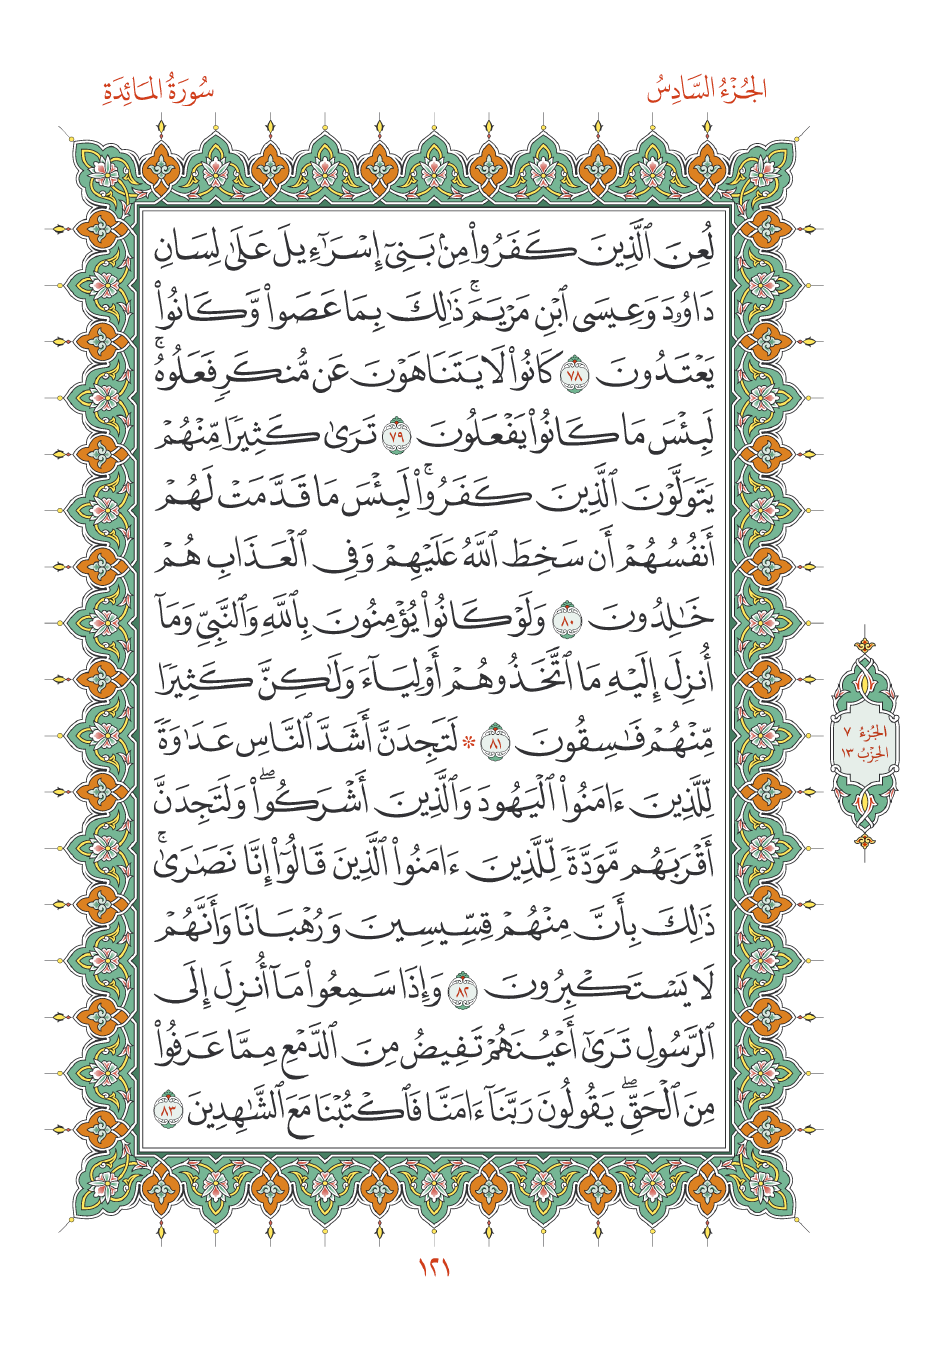 الجُزْءُ السَّادِسُ
سُورَةُ المَائِدَةِ
لُعِنَ ٱلَّذِينَ كَفَرُوا۟ مِنۢ بَنِىٓ إِسْرَٰٓءِيلَ عَلَىٰ لِسَانِ
دَاوُۥدَ وَعِيسَى ٱبْنِ مَرْيَمَ ۚ ذَٰلِكَ بِمَا عَصَوا۟ وَّكَانُوا۟
يَعْتَدُونَ ٧٨ كَانُوا۟ لَا يَتَنَاهَوْنَ عَن مُّنكَرٍ فَعَلُوهُ ۚ
لَبِئْسَ مَا كَانُوا۟ يَفْعَلُونَ ٧٩ تَرَىٰ كَثِيرًا مِّنْهُمْ
يَتَوَلَّوْنَ ٱلَّذِينَ كَفَرُوا۟ ۚ لَبِئْسَ مَا قَدَّمَتْ لَهُمْ
أَنفُسُهُمْ أَن سَخِطَ ٱللَّهُ عَلَيْهِمْ وَفِى ٱلْعَذَابِ هُمْ
خَـٰلِدُونَ ٨٠ وَلَوْ كَانُوا۟ يُؤْمِنُونَ بِٱللَّهِ وَٱلنَّبِىِّ وَمَآ
أُنزِلَ إِلَيْهِ مَا ٱتَّخَذُوهُمْ أَوْلِيَآءَ وَلَـٰكِنَّ كَثِيرًا
مِّنْهُمْ فَـٰسِقُونَ ٨١ * لَتَجِدَنَّ أَشَدَّ ٱلنَّاسِ عَدَٰوَةً
لِّلَّذِينَ ءَامَنُوا۟ ٱلْيَهُودَ وَٱلَّذِينَ أَشْرَكُوا۟ ۖ وَلَتَجِدَنَّ
أَقْرَبَهُم مَّوَدَّةً لِّلَّذِينَ ءَامَنُوا۟ ٱلَّذِينَ قَالُوٓا۟ إِنَّا نَصَـٰرَىٰ ۚ
ذَٰلِكَ بِأَنَّ مِنْهُمْ قِسِّيسِينَ وَرُهْبَانًا وَأَنَّهُمْ
لَا يَسْتَكْبِرُونَ ٨٢ وَإِذَا سَمِعُوا۟ مَآ أُنزِلَ إِلَى
ٱلرَّسُولِ تَرَىٰٓ أَعْيُنَهُمْ تَفِيضُ مِنَ ٱلدَّمْعِ مِمَّا عَرَفُوا۟
مِنَ ٱلْحَقِّ ۖ يَقُولُونَ رَبَّنَآ ءَامَنَّا فَٱكْتُبْنَا مَعَ ٱلشَّـٰهِدِينَ ٨٣
الجُزْءُ ٧
الحِزْبُ ١٣
١٢١